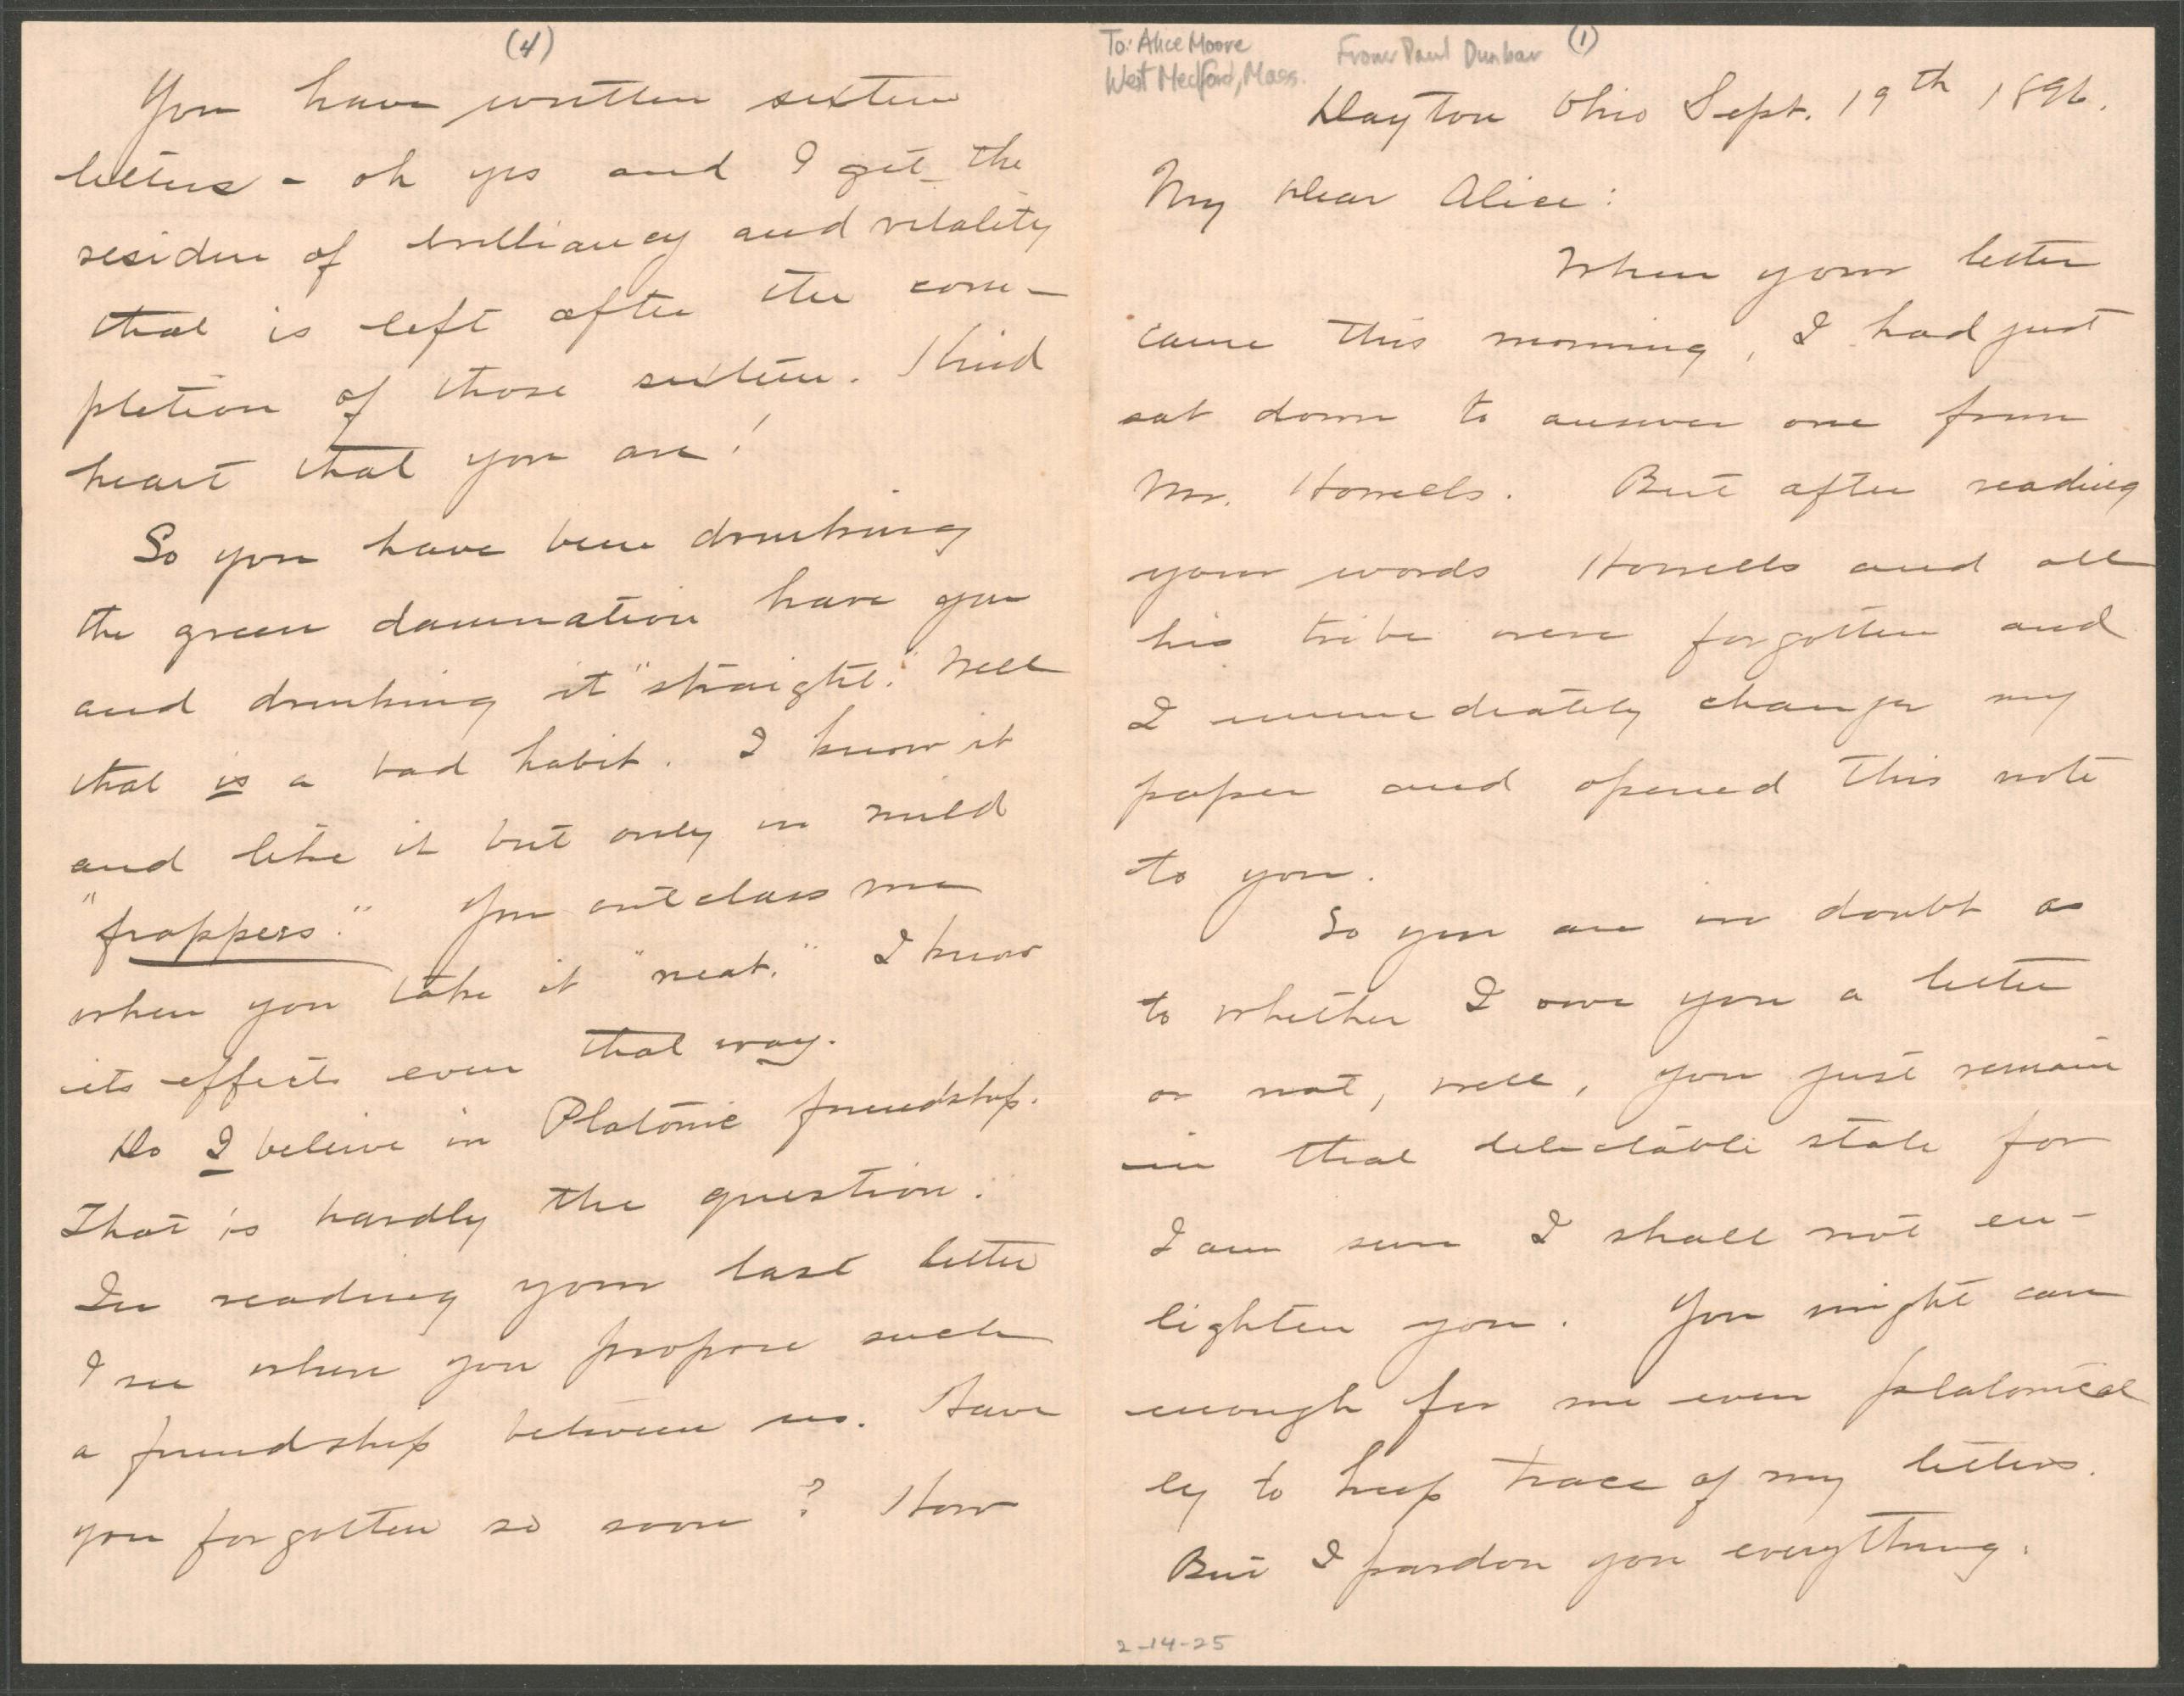 (4)
You have written sixteen
letters - oh yes and I get the
residue of brilliancy and vitality
that is left after the com-
pletion of those sixteen. Kind
heart that you are!
So you have been drinking
the green damnation have you
and drinking it "straight." Well
that is a bad habit. I know it
and like it but only in mild
"frappers." You outclass me
when you take it "neat." I know
its effects even that way.
Do I believe in Platonic friendship.
That is hardly the question.
In reading your last letter
I see where you propose such
a friendship between us. Have
you forgotten so soon? How
To: Alice Moore
West Medford, Mass.
From Paul Dunbar
(1)
Dayton Ohio Sept. 19th 1896.
My Dear Alice:
When your letter
came this morning, I had just
sat down to answer one from
Mr. Howells. But after reading
your words Howells and all
his tribe were forgotten and
I immediately changed my
paper and opened this note
to you.
So you are in doubt as
to whether I owe you a letter
or not, well, you just remain
in that delectable state for
I am sure I shall not en-
lighten you. You might care
enough for me even platonical
ly to keep trace of my letters.
But I pardon you everything.
2-14-25